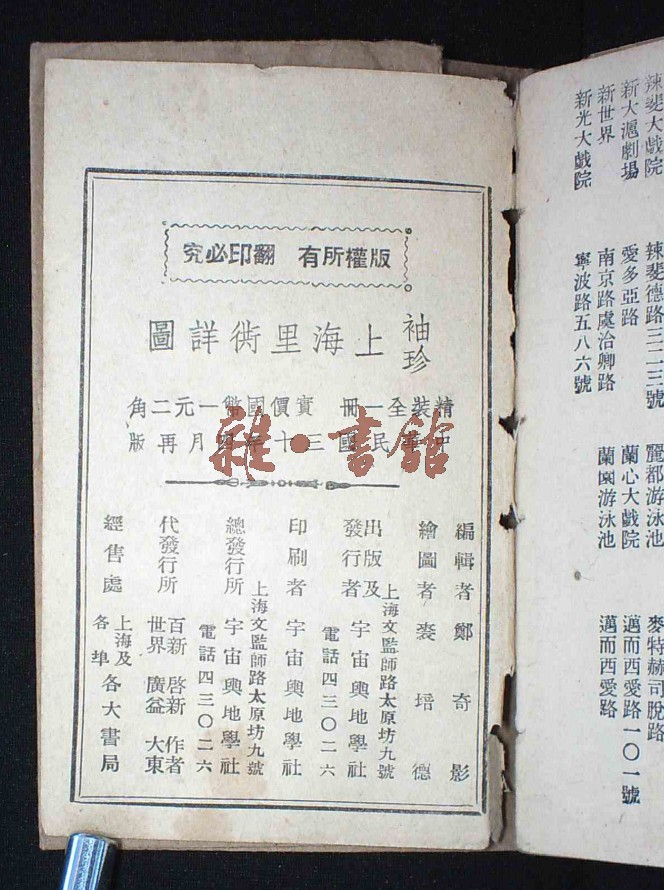 辣斐大戲院 辣斐德路三二三號 麗都游泳池 麥特赫司脫路
新大滬劇場 愛多亞路 蘭心大戲院 邁而西愛路一〇一號
新世界 南京路虞洽卿路 蘭園游泳池 邁而西愛路
新光大戲院 寧波路五八六號
版權所有 翻印必究
袖珍
上海里衖詳圖
精裝全一冊 實價國幣一元二角
中華民國三十年 月再版
雜·書館
編輯者 鄭奇影
繪圖者 裘培德
出版及
發行者
上海文監師路太原坊九號
宇宙輿地學社
電話四三〇二六
印刷者 宇宙輿地學社
總發行所
上海文監師路太原坊九號
宇宙輿地學社
電話四三〇二六
代發行所
百新 啓新 作者
世界 廣益 大東
經售處
上海及
各埠
各大書局